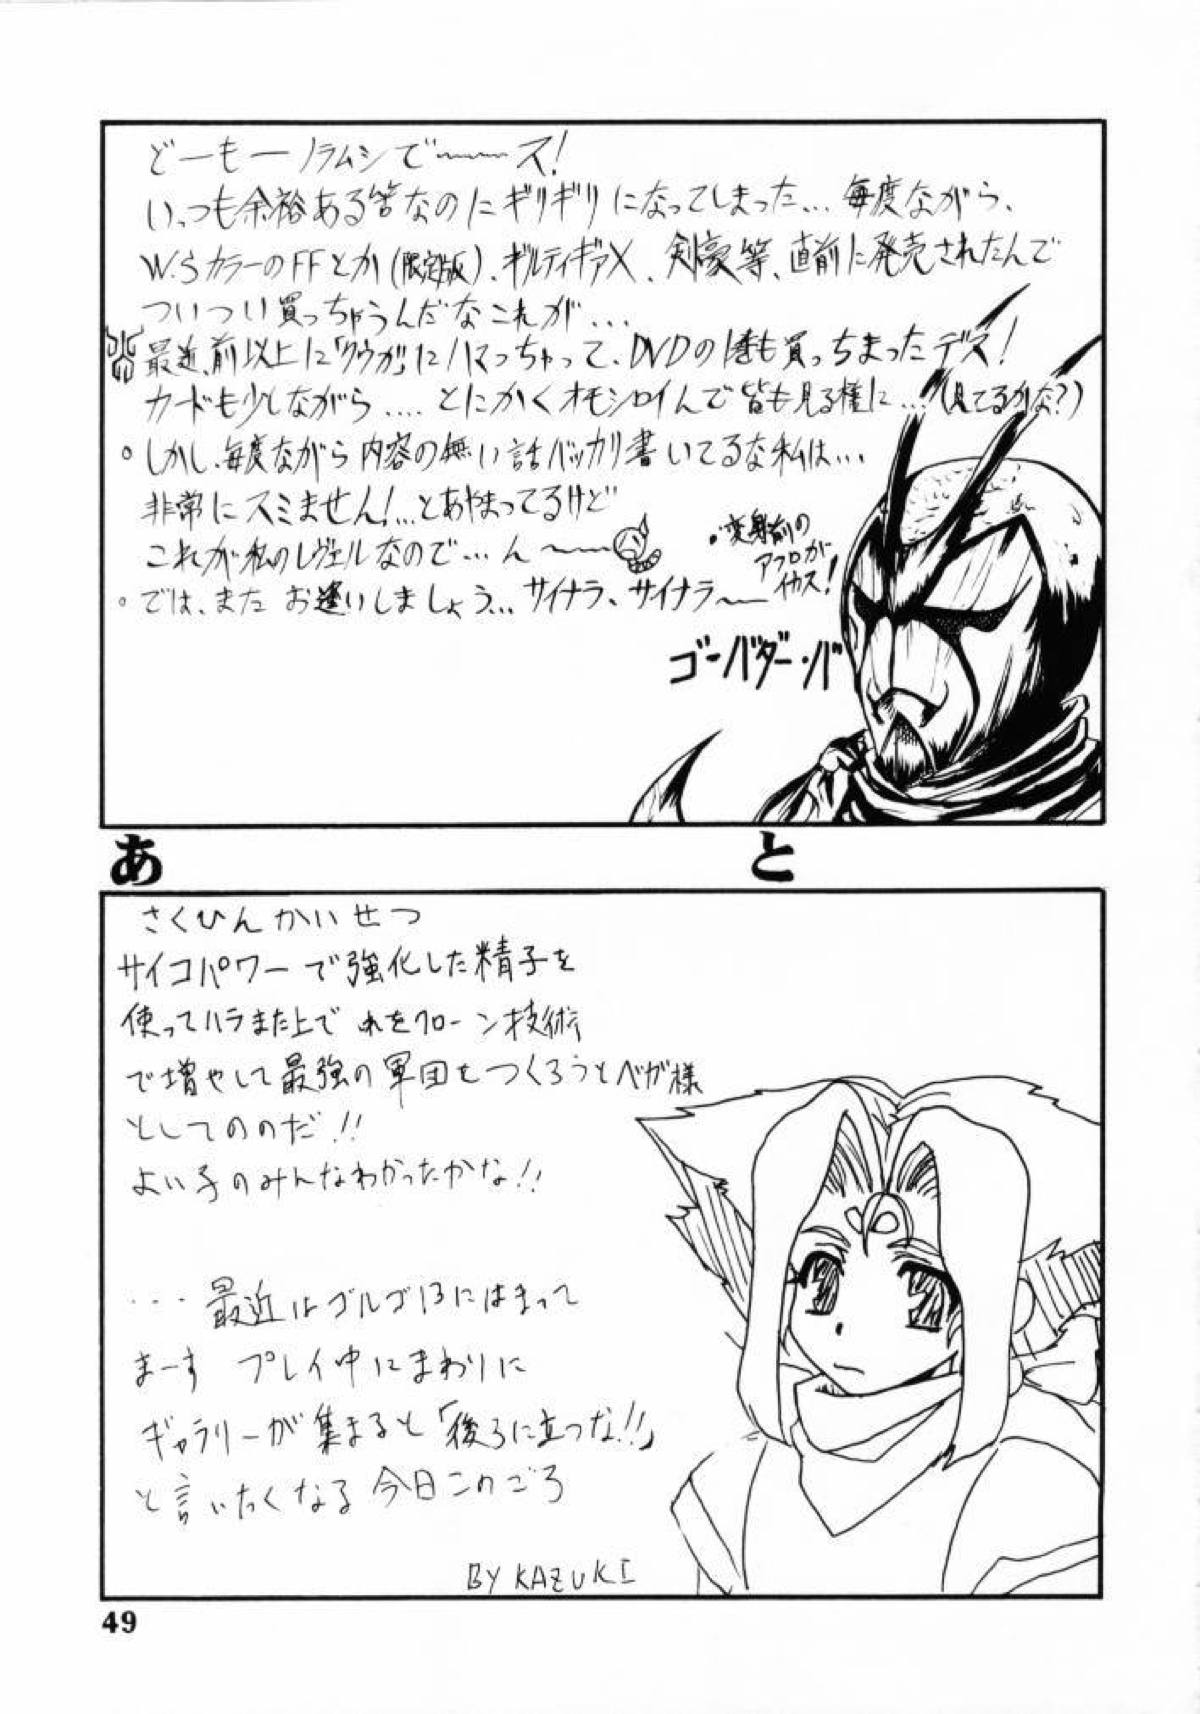 どーもーノラムシで〜〜ス!
いっつも余裕ある筈なのにギリギリになってしまった... 毎度ながら、
W.SカラーのFFとか(限定版)、ギルティギアX、剣豪等、直前に発売されたんで
ついつい買っちゃうんだなこれが...
最近、前以上に「クウガ」にハマっちゃって、DVDの1巻も買っちまったデス!
カードも少しながら.... とにかくオモシロイんで皆も見る様に...(見てるかな?)
。しかし、毎度ながら内容の無い話バッカリ書いてるな私は...
非常にスミません!...とあやまってるけど
これが私のレヴェルなので...ん〜〜
。では、また お逢いしましょう... サイナラ、サイナラ〜
・変身前の
アフロが
イカス!
ゴ・バダー・バ
あ
と
さくひんかいせつ
サイコパワーで強化した精子を
使ってハラまた上で をクローン技術
で増やして最強の軍団をつくろうとベガ様
としてののだ!!
よい子のみんなわかったかな!!
...最近はゴルゴ13にはまって
まーす プレイ中にまわりに
ギャラリーが集まると「後ろに立つな!!」
と言いたくなる今日このごろ
BY KAZUKI
49